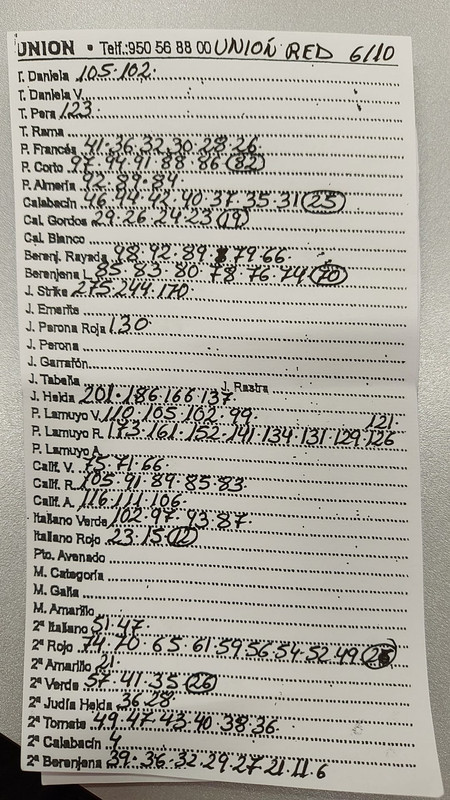 UNION • Telf.: 950 56 88 00 UNION RED 6/10
T. Daniela 105·102·
T. Daniela V.
T. Pera 123·
T. Rama
P. Francés 41·36·32·30·28·26
P. Corto 97·94·91·88·86 (82)
P. Almería 92·89·84·
Calabacín 46·44·42·40·37·35·31 (25)
Cal. Gordos 29·26·24·23 (19)
Cal. Blanco
Berenj. Rayada 98·92·89·79·66·
Berenjena L. 85·83·80·78·76·74 (70)
J. Strike 275·244·170·
J. Emerite
J. Perona Roja 130·
J. Perona
J. Garrafón
J. Tabella J. Rastra
J. Helda 201·186·166·137·
P. Lamuyo V. 110·105·102·99· 121·
P. Lamuyo R. 173·161·152·141·134·131·129·126
P. Lamuyo A.
Calif. V. 75·71·66·
Calif. R. 105·91·89·85·83·
Calif. A. 116·111·106·
Italiano Verde 102·97·93·87·
Italiano Rojo 23·15 (12)
Pto. Avenado
M. Categoría
M. Galia
M. Amarillo
2ª Italiano 51·47·
2ª Rojo 74·70·65·61·59·56·54·52·49
2ª Amarillo 21·
2ª Verde 57·41·35 (26)
2ª Judía Helda 36·28·
2ª Tomate 49·47·43·40·38·36·
2ª Calabacín 4
2ª Berenjena 39·36·32·29·27·21·11·6